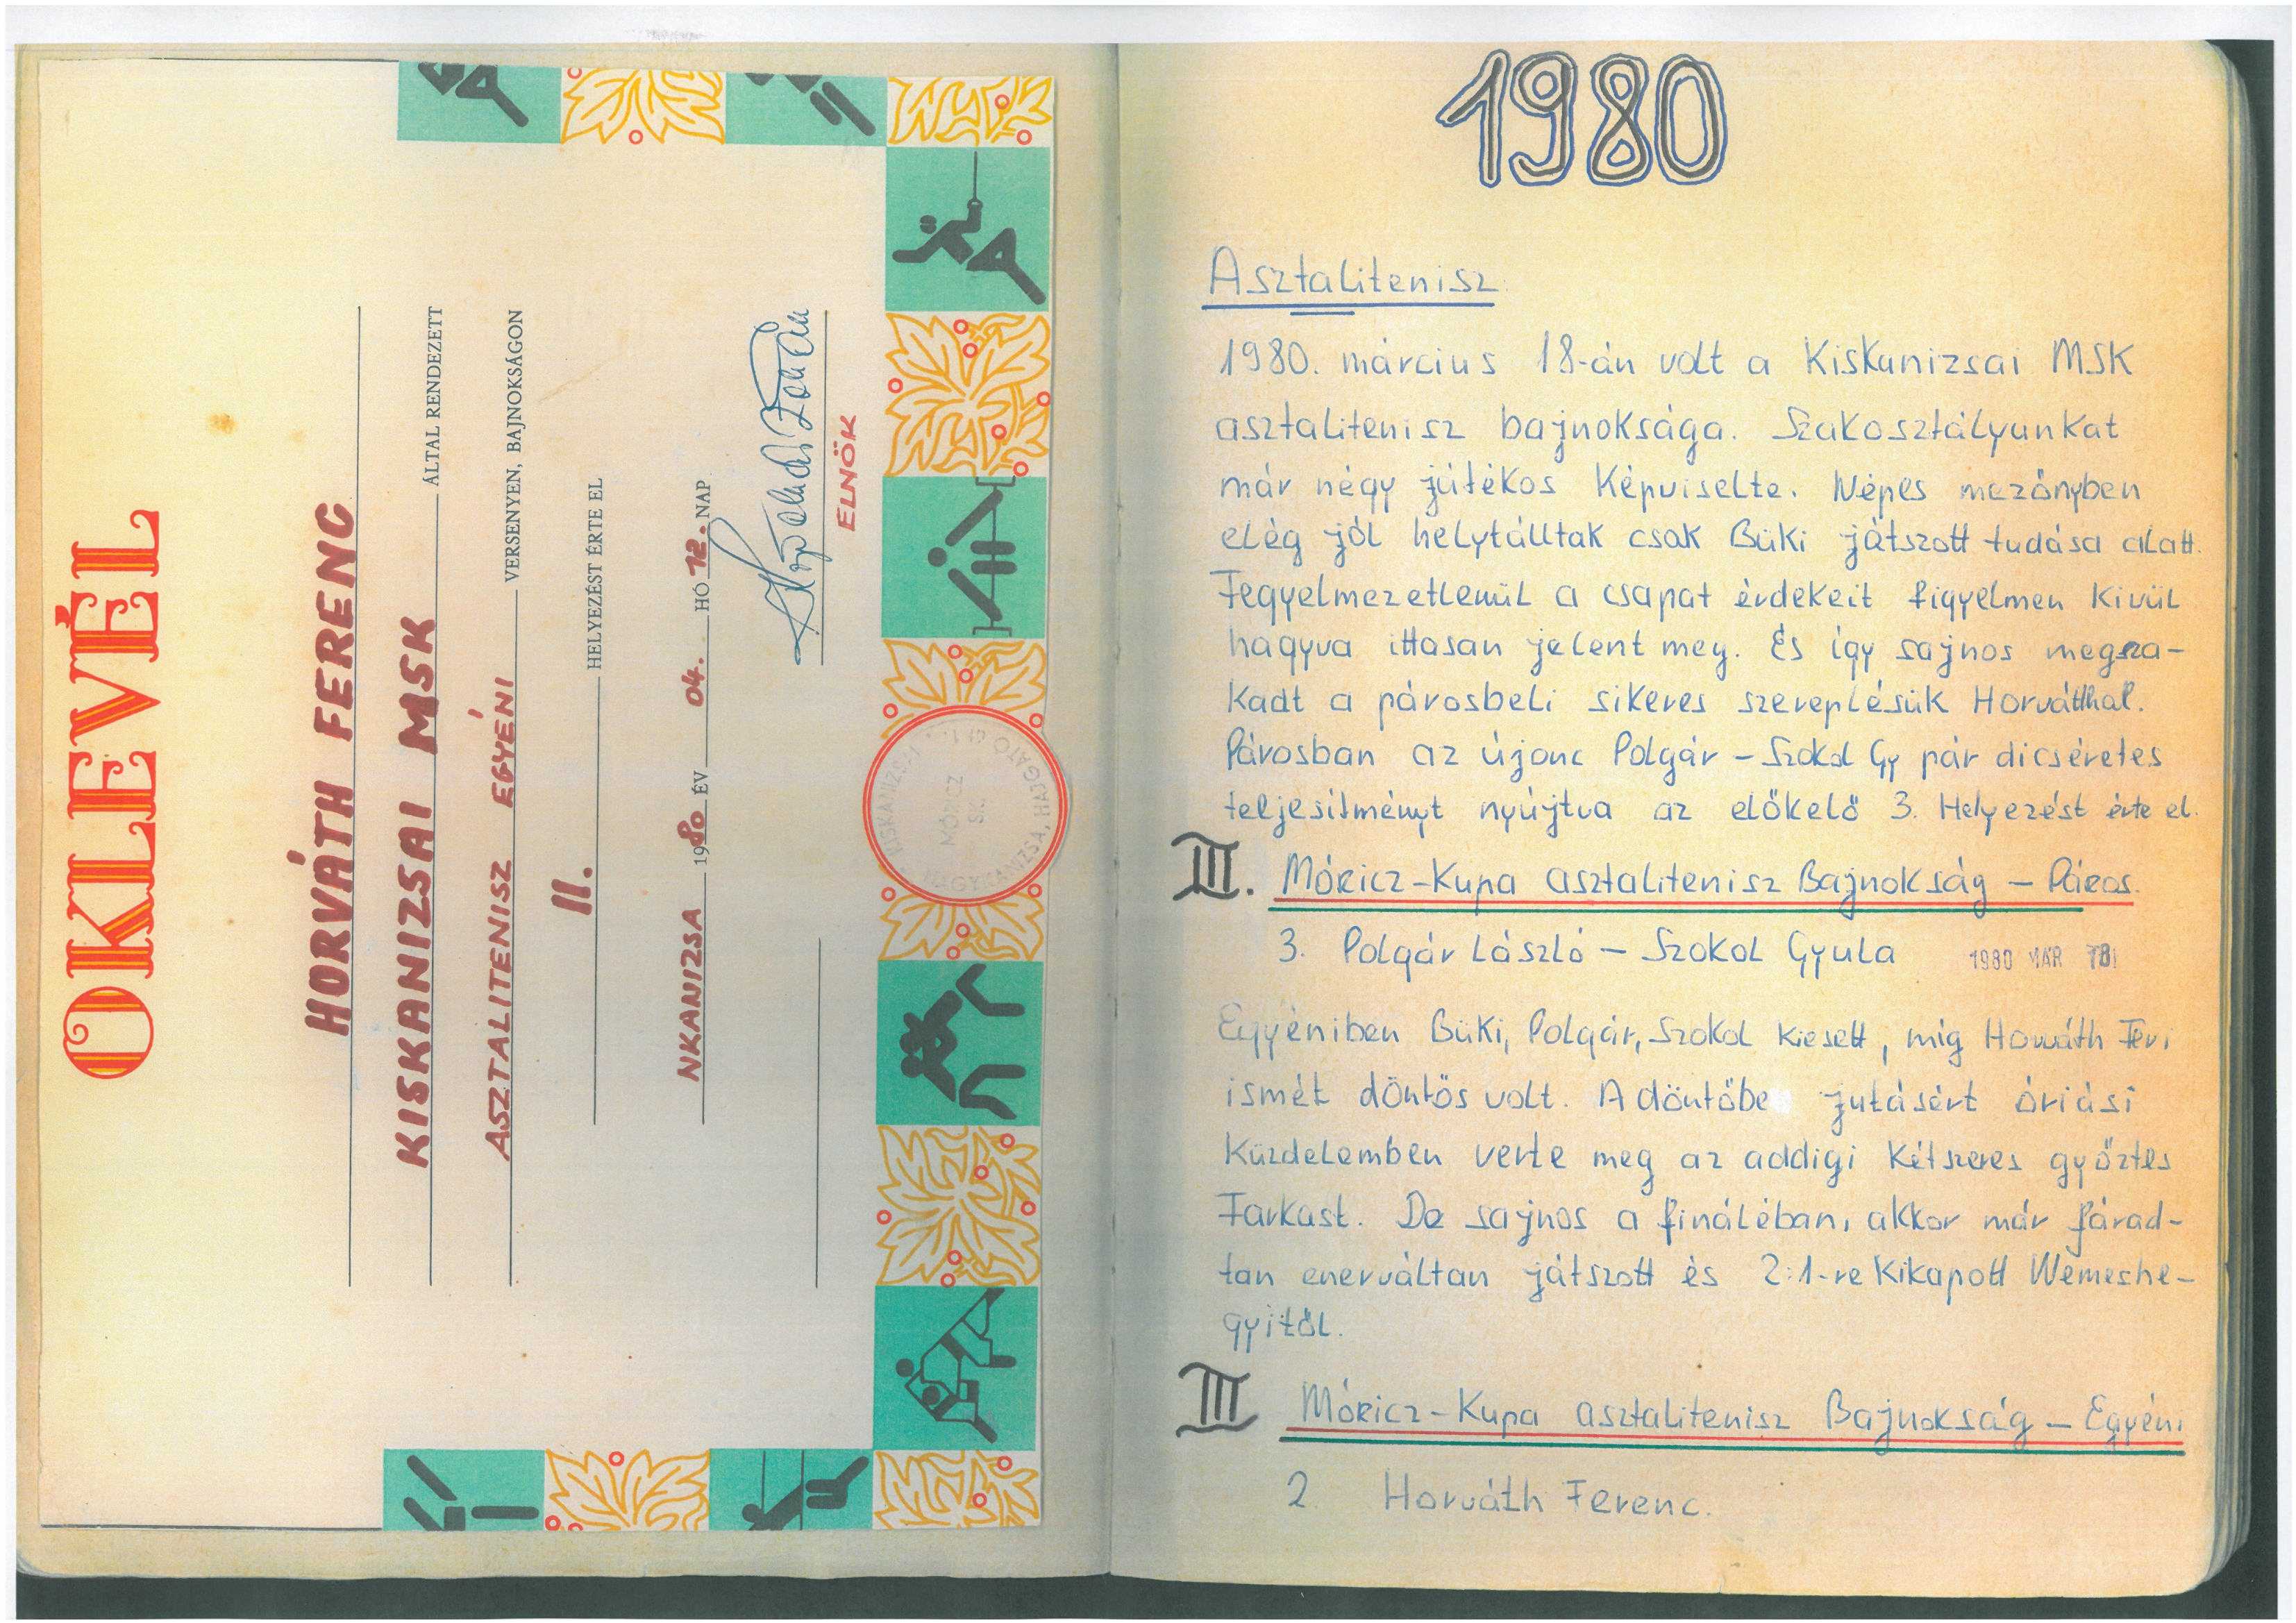 OKLEVÉL
HORVÁTH FERENC
KISKANIZSAI MSK ÁLTAL RENDEZETT
ASZTALITENISZ EGYÉNI VERSENYEN, BAJNOKSÁGON
II. HELYEZÉST ÉRTE EL
NKANIZSA 1980 ÉV 04. HÓ 12. NAP
ELNÖK
MÓRICZ
1980
Asztalitenisz
1980. március 18-án volt a Kiskanizsai MSK
asztalitenisz bajnoksága. Szakosztályunkat
már négy játékos képviselte. Népes mezőnyben
elég jól helytálltak csak Büki játszott tudása alatt.
Fegyelmezetlenül a csapat érdekeit figyelmen kivül
hagyva ittasan jelent meg. És így sajnos megsza-
kadt a párosbeli sikeres szereplésük Horváthhal.
Párosban az újonc Polgár - Szokol Gy pár dicséretes
teljesitményt nyújtva az előkelő 3. Helyezést érte el.
III. Móricz-Kupa asztalitenisz Bajnokság - Páros.
3. Polgár László - Szokol Gyula 1980 MÁR 18
Egyéniben Büki, Polgár, Szokol kiesett, míg Horváth Feri
ismét döntős volt. A döntőbe jutásért óriási
küzdelemben verte meg az addigi kétszeres győztes
Farkast. De sajnos a fináléban, akkor már fárad-
tan enerváltan játszott és 2:1-re kikapott Wemeshe-
gyitől.
III Móricz-Kupa asztalitenisz Bajnokság - Egyéni
2. Horváth Ferenc.